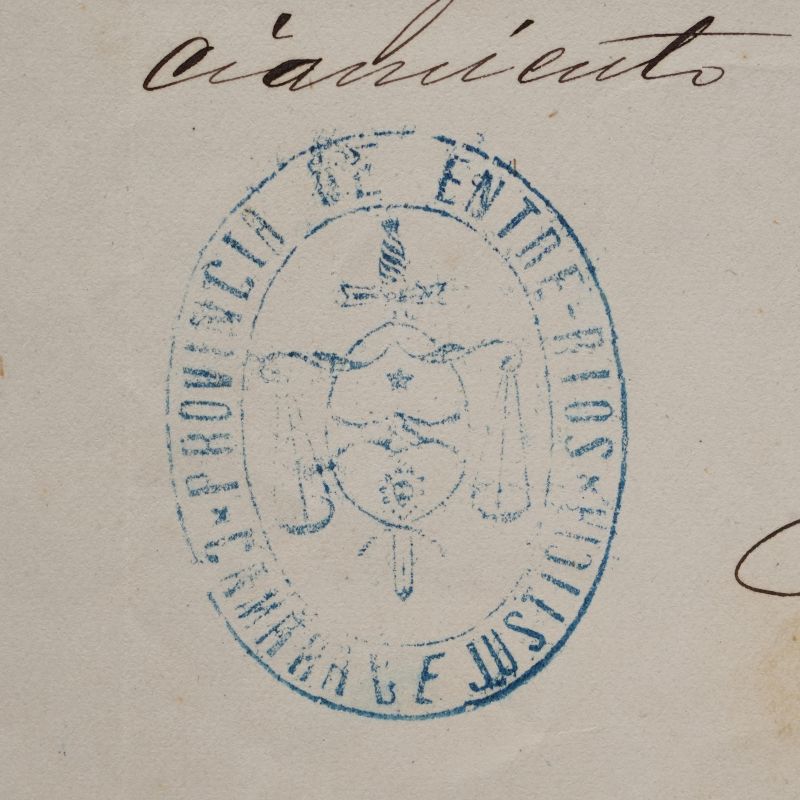 ciamiento
PROVINCIA DE ENTRE-RIOS
CAMARA DE JUSTICIA